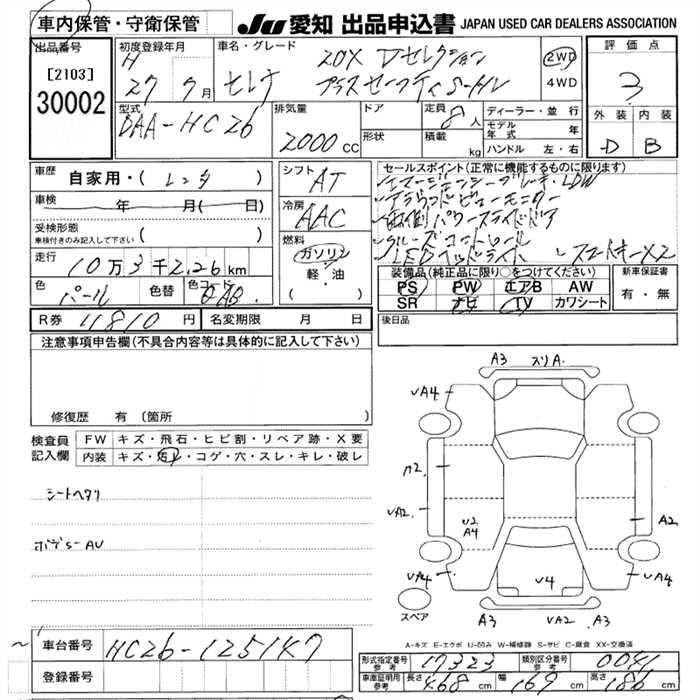 車内保管・守衛保管
JU 愛知 出品申込書 JAPAN USED CAR DEALERS ASSOCIATION
出品番号
[2103]
30002
初度登録年月
H
27 7 月
車名・グレード
セレナ
20X Vセレクション
プラスセーフティ S-HV
2WD
4WD
評価点
3
外装 内装
D B
型式
DAA-HC26
排気量
2000 cc
ドア
形状
定員 8 人
積載 kg
ディーラー・並行
モデル年式 年
ハンドル 左・右
車歴
自家用・( レンタ )
車検
年 月( 日)
受検形態
車検付きのみ記入して下さい ( )
走行
10 万 3 千 226 km
色
パール
色替
色コード
QAB
シフト
AT
冷房
AAC
燃料
ガソリン
軽・油
( )
セールスポイント(正常に機能するものに限ります)
エマージェンシーブレーキ・LDW
アラウンドビューモニター
両側パワースライドドア
クルーズコントロール
LEDヘッドライト スマートキーX2
装備品(純正品に限り○をつけてください)
PS PW エアB AW
SR ナビ TV カワシート
新車保証書
有・無
R券 11810 円
名変期限 月 日
後日品
注意事項申告欄(不具合内容等は具体的に記入して下さい)
修復歴 有 (箇所
検査員
記入欄
FW キズ・飛石・ヒビ割・リペア跡・X要
内装 キズ・汚レ・コゲ・穴・スレ・キレ・破レ
シートヘタリ
ボデS-AU
A3 スリA.
UA4
A2
UA2
U2
A4
A2
UA4
U4
UA4
スペア
A3 UA2 A3
A-キズ E-エクボ U-凹み W-補修跡 S-サビ C-腐食 XX-交換済
車台番号 HC26-125147
登録番号
形式指定番号
参考
17323
類別区分番号
参考
0041
車庫証明用
参考
長さ 468 cm 幅 169 cm 高さ 186 cm